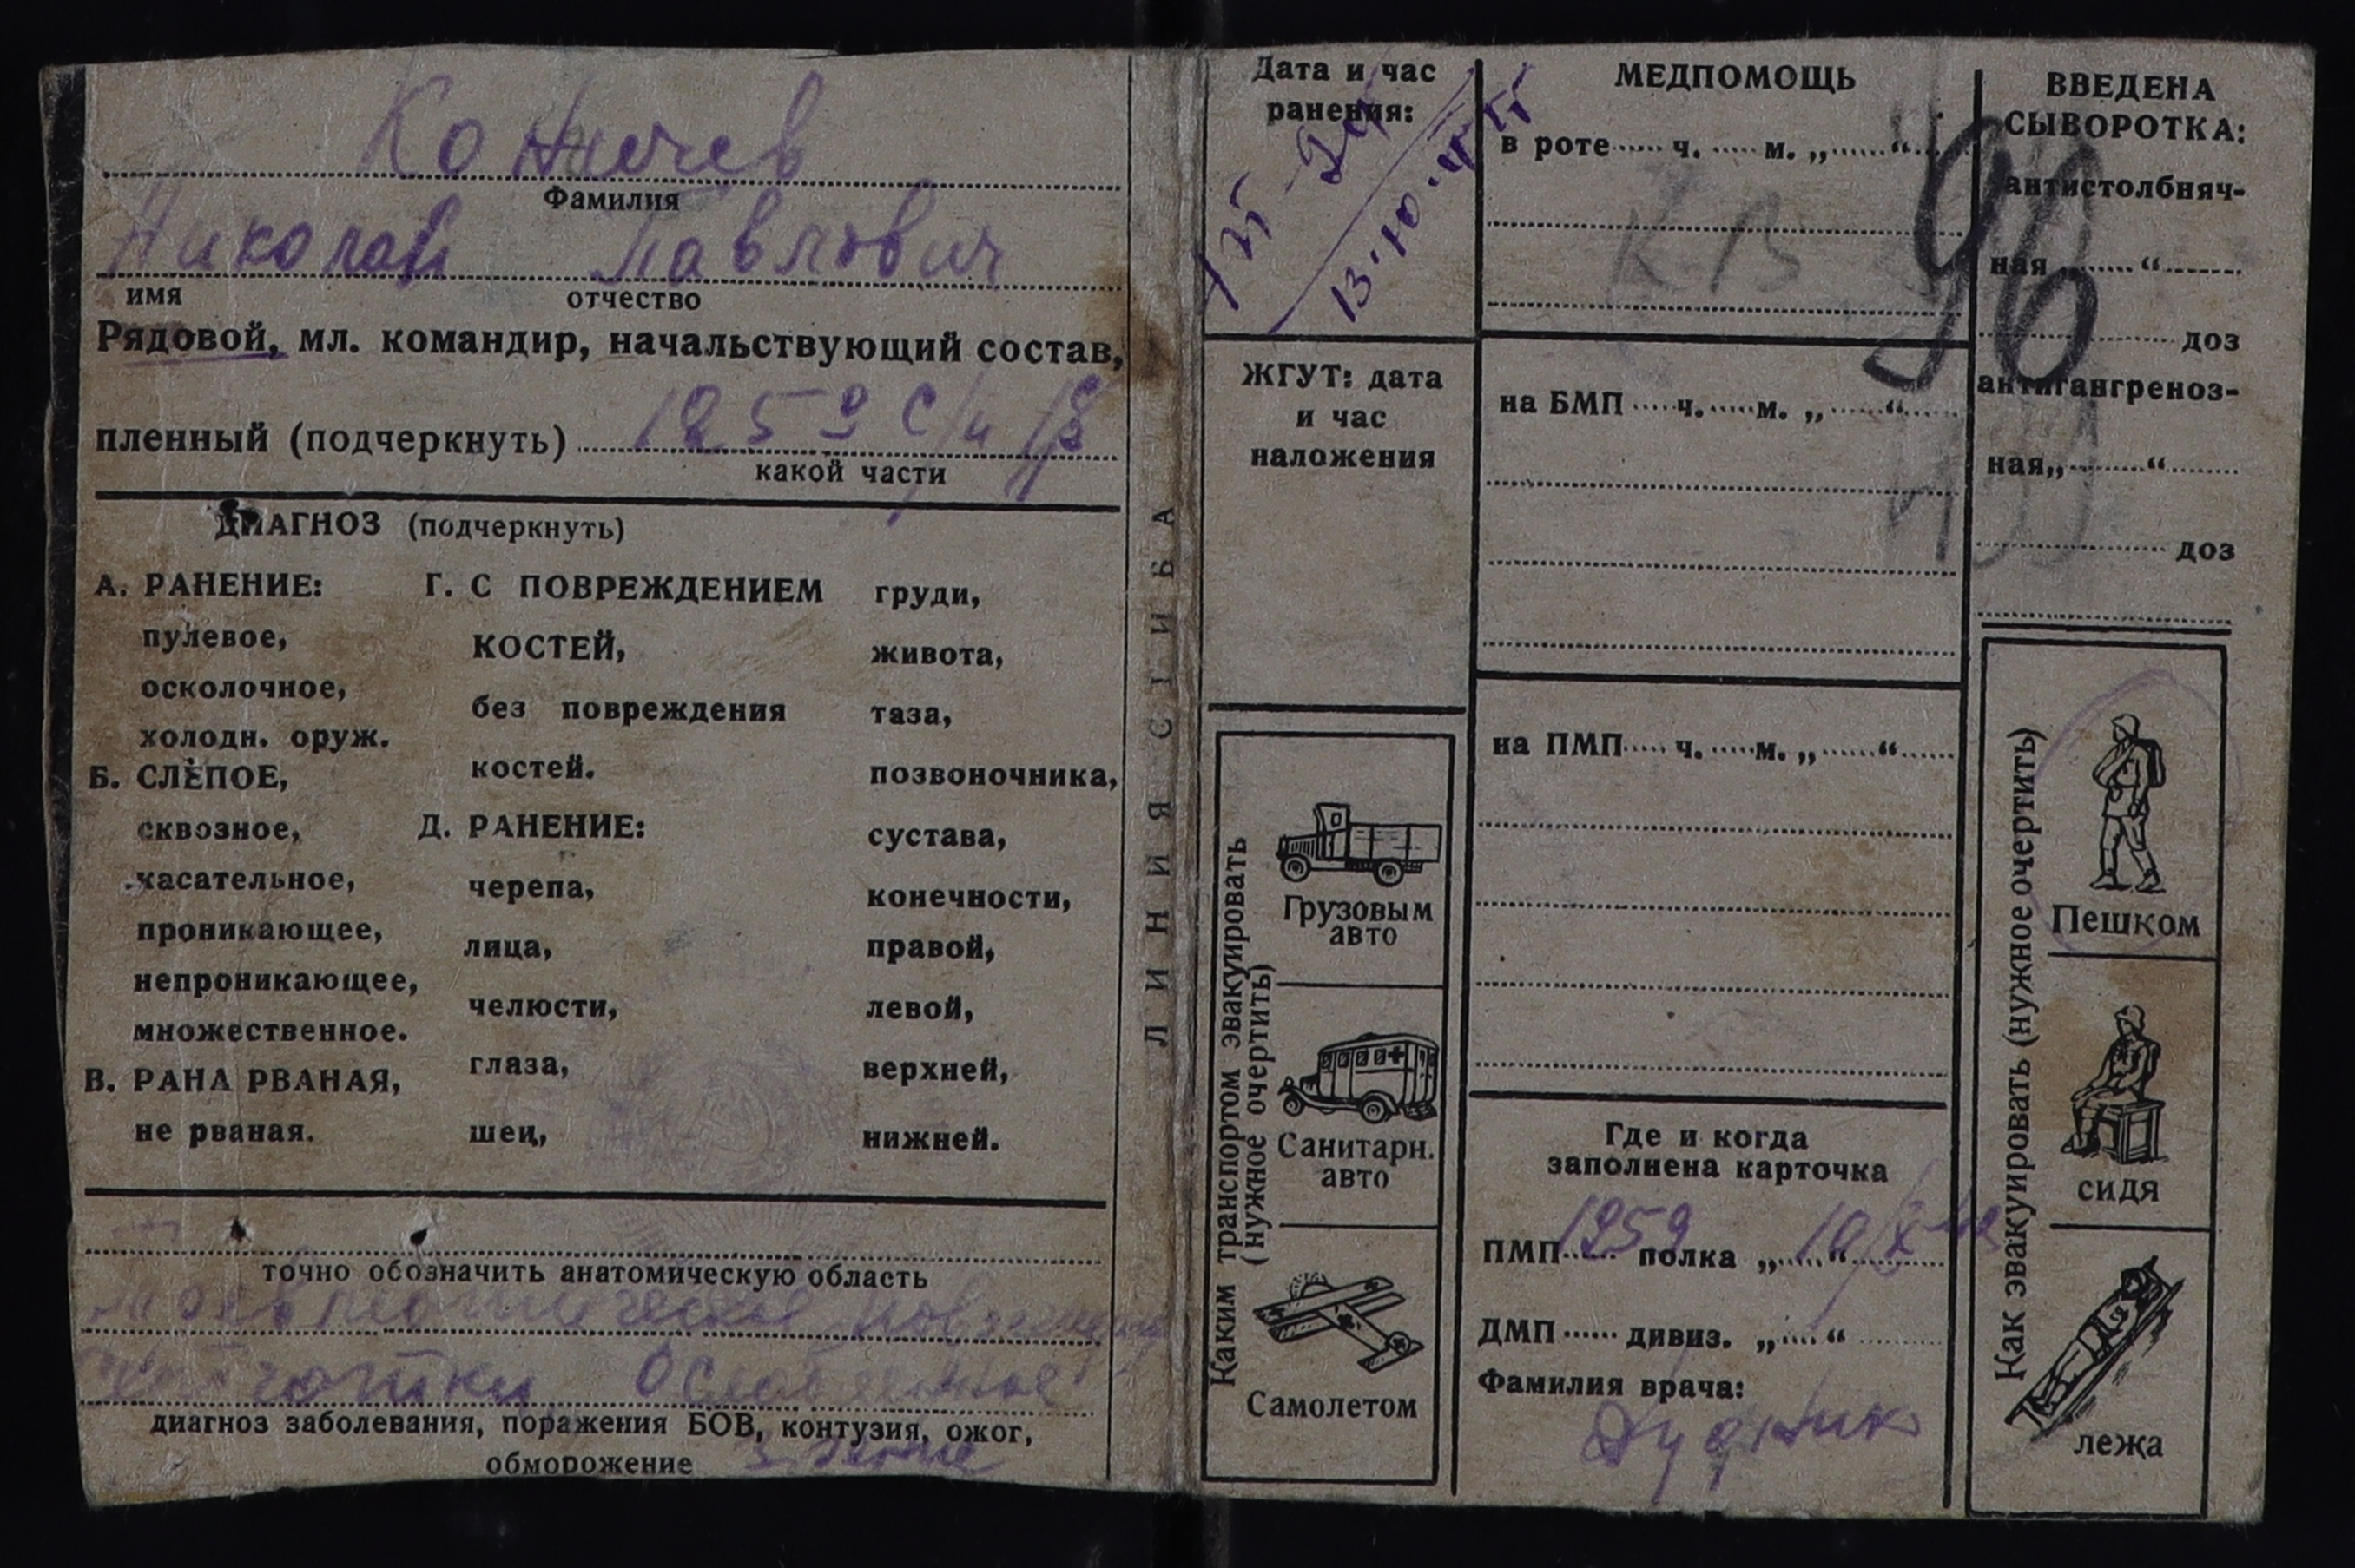 Николай Павлович
Фамилия
имя
отчество
Рядовой, мл. командир, начальствующий состав,
пленный (подчеркнуть)
какой части
ДИАГНОЗ (подчеркнуть)
А. РАНЕНИЕ:
пулевое,
осколочное,
холодн. оруж.
Б. СЛЕПОЕ,
сквозное,
касательное,
проникающее,
непроникающее,
множественное.
В. РАНА РВАНАЯ,
не рваная.
Г. С ПОВРЕЖДЕНИЕМ
КОСТЕЙ,
без повреждения
костей.
Д. РАНЕНИЕ:
черепа,
лица,
челюсти,
глаза,
шеи,
груди,
живота,
таза,
позвоночника,
сустава,
конечности,
правой,
левой,
верхней,
нижней.
точно обозначить анатомическую область
диагноз заболевания, поражения БОВ, контузия, ожог,
обморожение
ЛИНИЯ СГИБА
Дата и час
ранения:
13.10.42
ЖГУТ: дата
и час
наложения
Каким транспортом эвакуировать
(нужное очертить)
Грузовым
авто
Санитарн.
авто
Самолетом
МЕДПОМОЩЬ
в роте ч. м. „ “
КВ
на БМП ч. м. „ “
на ПМП ч. м. „ “
Где и когда
заполнена карточка
ПМП 1259 полка „ 10/X 42 “
ДМП дивиз. „ “
Фамилия врача:
Дудник
ВВЕДЕНА
СЫВОРОТКА:
антистолбняч-
ная “
доз
антигангреноз-
ная „ “
доз
96
Как эвакуировать (нужное очертить)
Пешком
сидя
лежа